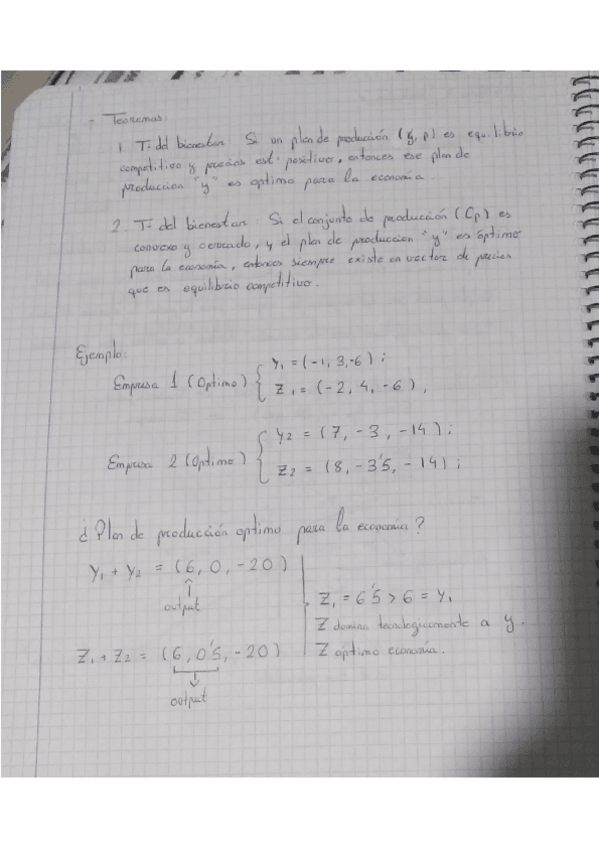 - Teoremas
1. Tª del bienestar: Si un plan de producción (y, p) es equilibrio
competitivo y precios est. positivo, entonces ese plan de
producción "y" es optimo para la economía.
2. Tª del bienestar: Si el conjunto de producción (Cp) es
convexo y cerrado, y el plan de produccion "y" es óptimo
para la economía, entonces siempre existe un vector de precios
que es equilibrio competitivo.
Ejemplo:
Empresa 1 (Optimo) { y₁ = (-1, 3, -6);
z₁ = (-2, 4, -6),
Empresa 2 (Optimo) { y₂ = (7, -3, -14);
z₂ = (8, -3'5, -14);
¿Plan de producción optimo para la economía?
y₁ + y₂ = (6, 0, -20)
output
z₁ + z₂ = (6, 0'5, -20)
output
z₁ = 6'5 > 6 = y₁
z domina tecnologicamente a y.
z optimo economía.